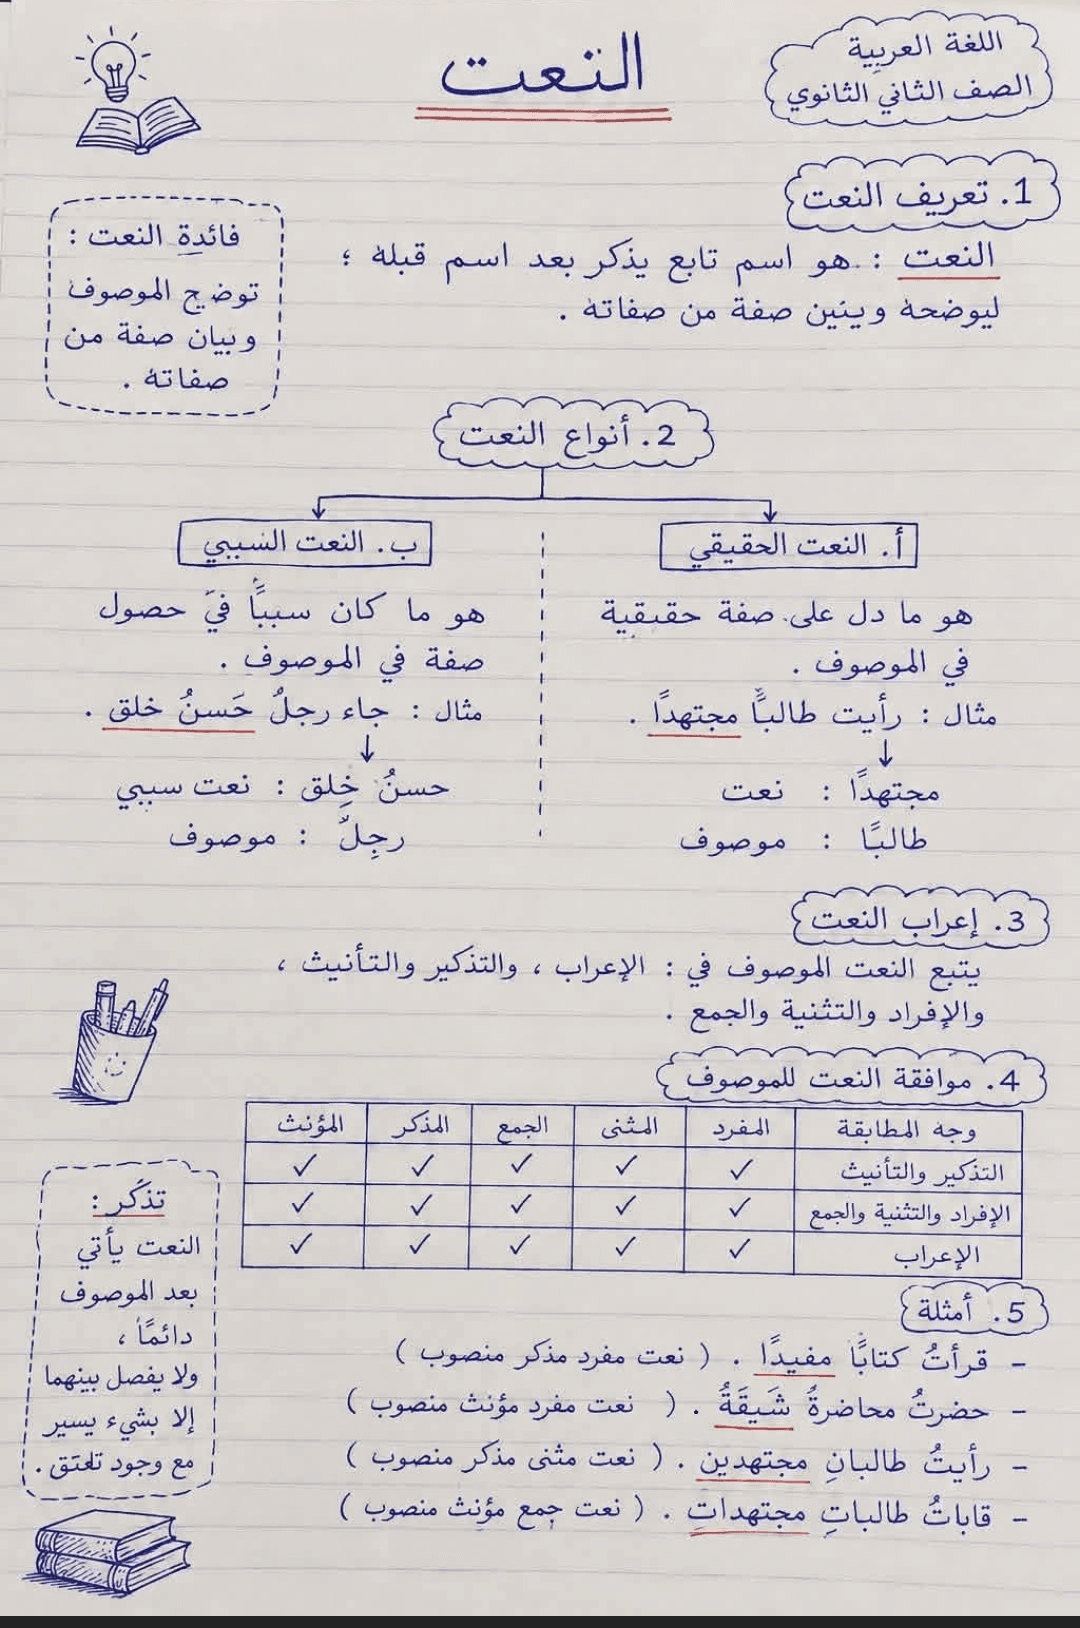 اللغة العربية
الصف الثاني الثانوي
النعت
1. تعريف النعت
النعت : هو اسم تابع يذكر بعد اسم قبله ؛
ليوضحه وينين صفة من صفاته .
فائدة النعت :
توضيح الموصوف
وبيان صفة من
صفاته .
2. أنواع النعت
أ. النعت الحقيقي
هو ما دل على صفة حقيقية
في الموصوف .
مثال : رأيت طالبًا مجتهدًا .
مجتهدًا : نعت
طالبًا : موصوف
ب. النعت السببي
هو ما كان سببًا في حصول
صفة في الموصوف .
مثال : جاء رجلُ حَسنُ خلق .
حسنُ خلق : نعت سببي
رجلٌ : موصوف
3. إعراب النعت
يتبع النعت الموصوف في : الإعراب ، والتذكير والتأنيث ،
والإفراد والتثنية والجمع .
4. موافقة النعت للموصوف
وجه المطابقة المفرد المثنى الجمع المذكر المؤنث
التذكير والتأنيث ✓ ✓ ✓ ✓ ✓
الإفراد والتثنية والجمع ✓ ✓ ✓ ✓ ✓
الإعراب ✓ ✓ ✓ ✓ ✓
تذكر :
النعت يأتي
بعد الموصوف
دائمًا ،
ولا يفصل بينهما
إلا بشيء يسير
مع وجود .
5. أمثلة
- قرأتُ كتابًا مفيدًا . ( نعت مفرد مذكر منصوب )
- حضرتُ محاضرةُ شَيقَةُ . ( نعت مفرد مؤنث منصوب )
- رأيتُ طالبانِ مجتهدين . ( نعت مثنى مذكر منصوب )
- قاباتُ طالباتِ مجتهداتِ . ( نعت جمع مؤنث منصوب )